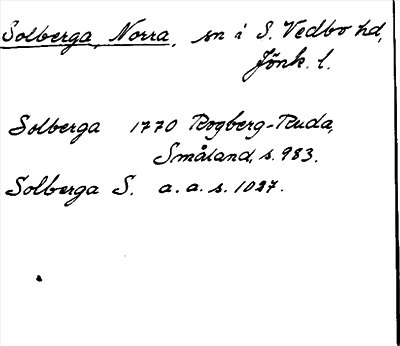 Solberga, Norra, sn i S. Vedbo hd,
Jönk. l.
Solberga 1770 Rogberg-Ruda,
Småland, s. 983.
Solberga S. a. a. s. 1027.